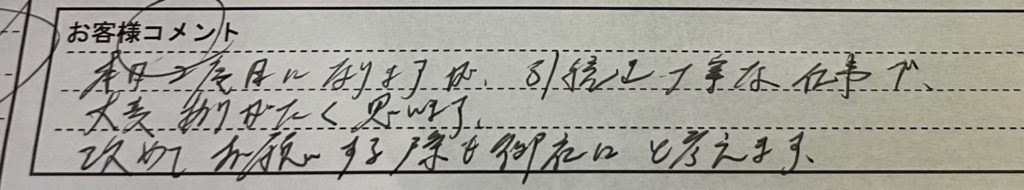 お客様コメント
本日2度目になりますが、引続き丁寧な仕事で、
大変ありがたく思います。
改めてお願いする際も御社にと考えます。